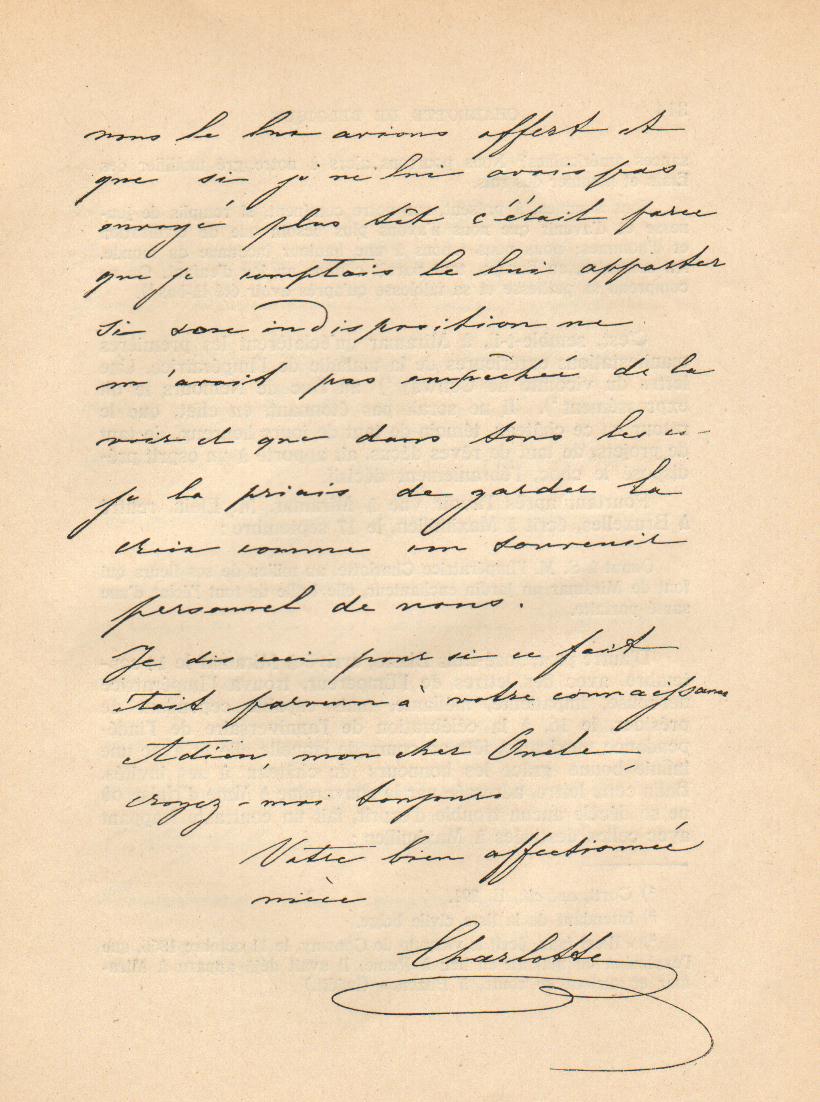 nous le lui avions offert et
que si je ne lui avais pas
envoyé plus tôt c'était parce
que je comptais le lui apporter
si son indisposition ne
m'avait pas empêchée de la
voir et que dans tous les cas
je la priais de garder la
croix comme un souvenir
personnel de nous.
Je dis ceci pour si ce fait
était parvenu à votre connaissance
Adieu, mon cher Oncle,
croyez-moi toujours
Votre bien affectionnée
nièce
Charlotte